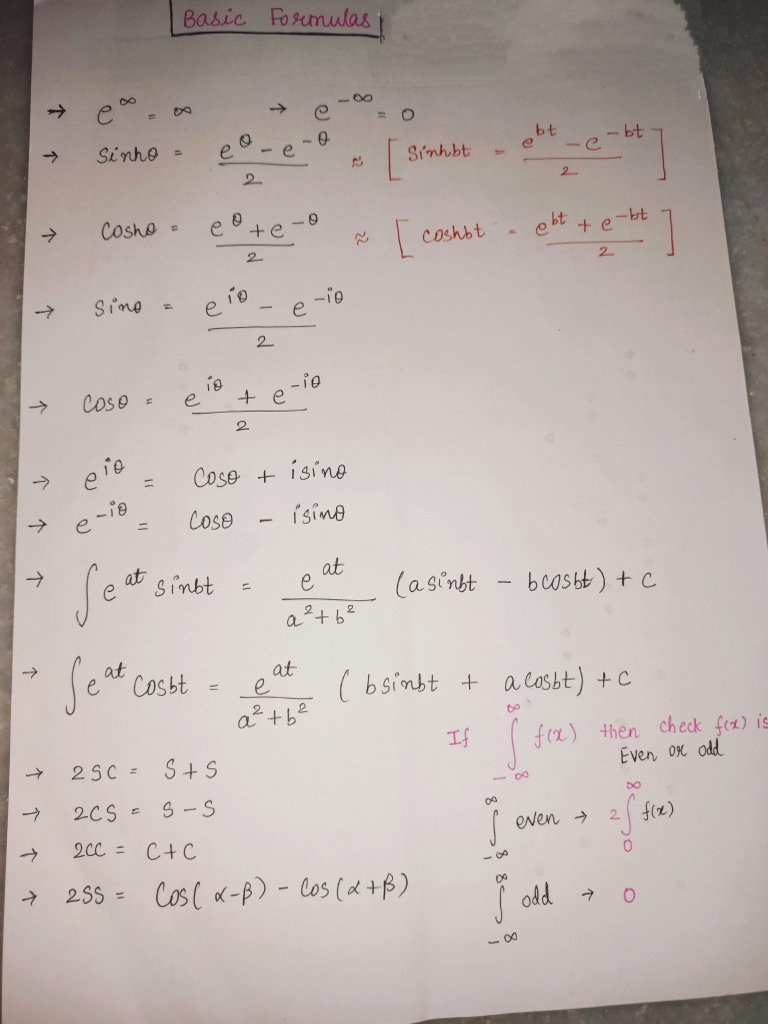 Basic Formulas
→ e^∞ = ∞ → e^-∞ = 0
→ Sinhθ = (e^θ - e^-θ)/2 ≈ [Sinhbt = (e^bt - e^-bt)/2]
→ Coshθ = (e^θ + e^-θ)/2 ≈ [coshbt = (e^bt + e^-bt)/2]
→ Sinθ = (e^iθ - e^-iθ)/2
→ Cosθ = (e^iθ + e^-iθ)/2
→ e^iθ = Cosθ + isinθ
→ e^-iθ = Cosθ - isinθ
→ ∫e^at sinbt = e^at/(a²+b²) (asinbt - bcosbt) + c
→ ∫e^at Cosbt = e^at/(a²+b²) (bsinbt + acosbt) + C
If ∫_-∞^∞ f(x) then check f(x) is
Even or odd
→ 2SC = S+S
→ 2CS = S-S
→ 2CC = C+C
→ 2SS = Cos(α-β) - Cos(α+β)
∫_-∞^∞ even → 2∫_0^∞ f(x)
∫_-∞^∞ odd → 0